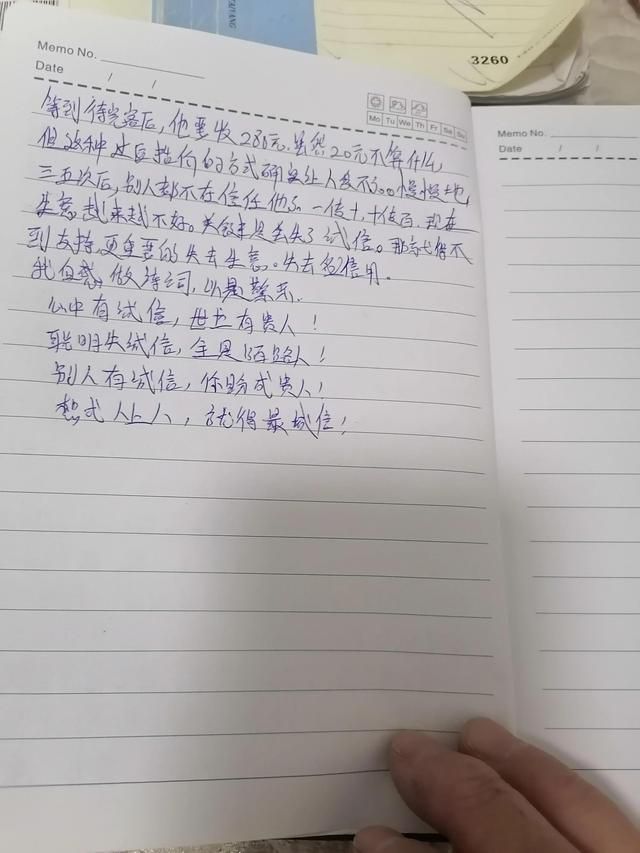 3260
Memo No.
Date / /
Mo Tu We Th Fr Sa Su
等到待完客后，他要收280元。虽然20元不算什么，
但这种过后抬价的方式确实让人受不了。慢慢地
三五次后，别人都不在信任他了。一传十，十传百，现在
生意越来越不好。关键是丢失了诚信。那就得不
到支持，更重要的失去生意。失去名信用。
我自感，做诗词，以是警示。
心中有诚信，世上有贵人！
聪明失诚信，全是陌路人！
别人有诚信，你成贵人！
想人上人，就得最诚信！
Memo No.
Date / /